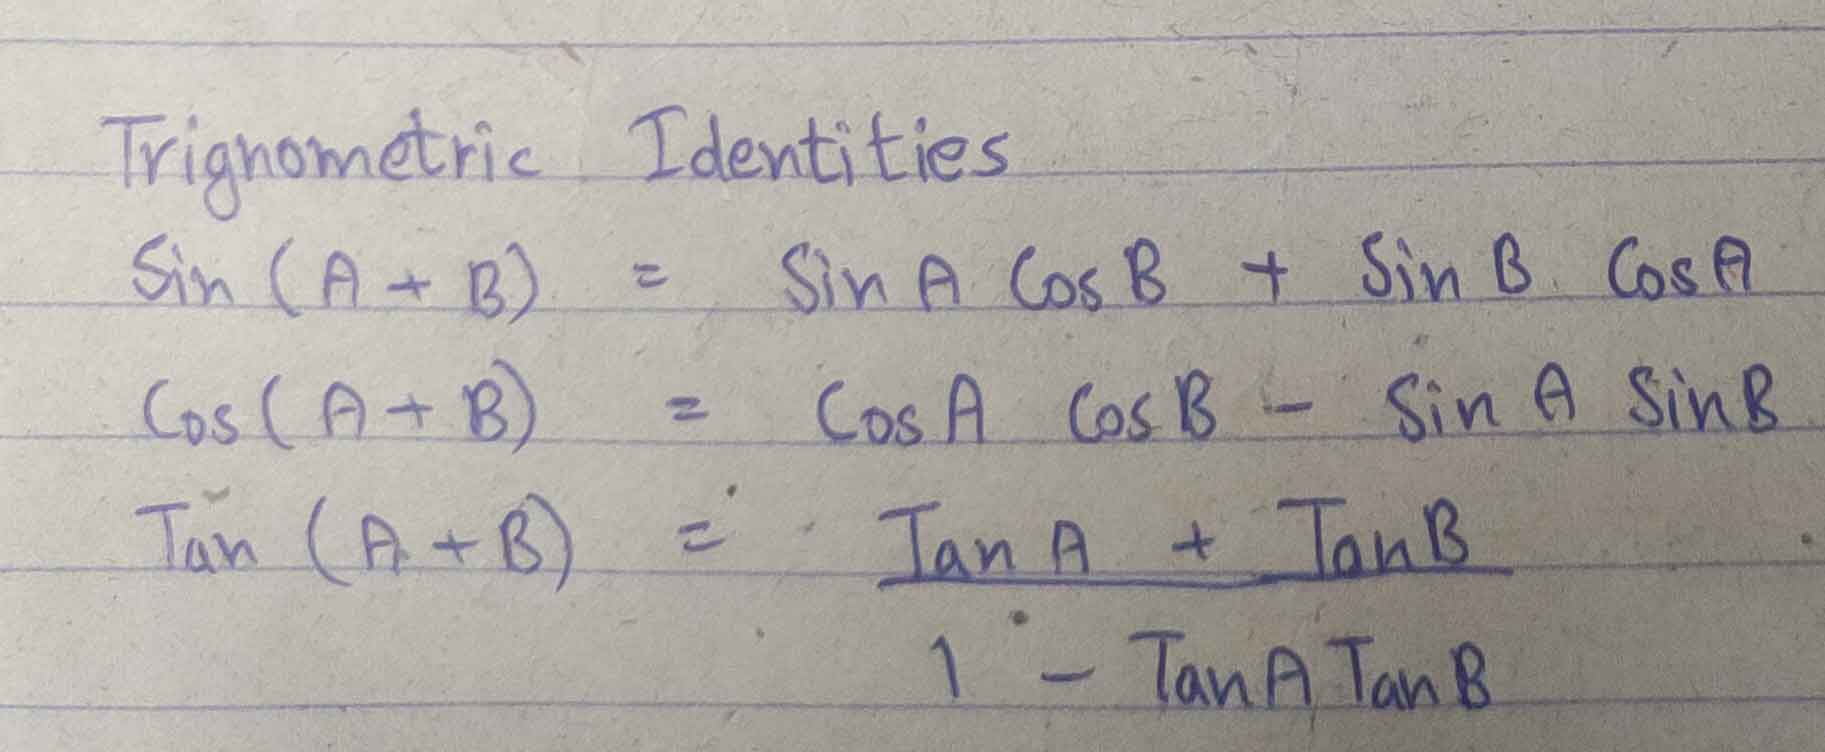 Trignometric Identities
Sin (A + B) = Sin A Cos B + Sin B Cos A
Cos (A + B) = Cos A Cos B - Sin A Sin B
Tan (A + B) = Tan A + Tan B
1 - Tan A Tan B